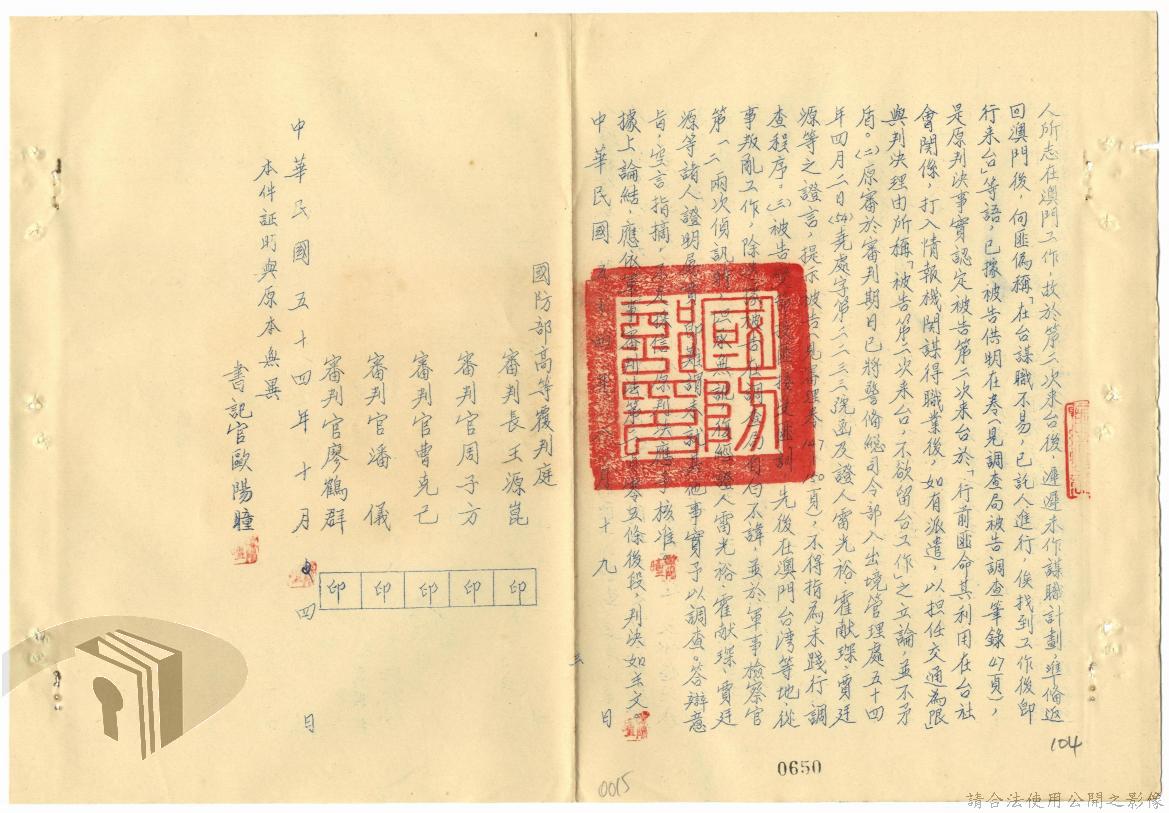 人所志在澳門工作，故於第二次來台後，遲遲未作謀職計劃，準備返
回澳門後，向匪偽稱「在台謀職不易，已託人進行，俟找到工作後即
行來台」等語，已據被告供明在卷（見調查局被告調查筆錄47頁），
是原判決事實認定被告第二次來台，於「行前匪命其利用在台社
會關係，打入情報機關謀得職業後，如有派遣，以担任交通為限」
與判決理由所稱「被告第二次來台，不欲留台工作」之立論，並不矛
盾。㈡原審於審判期日已將警備總司令部入出境管理處五十四
年四月二日(54)堯處字第二二三三號函及證人雷光裕、霍献琛、賈廷
源等之證言，提示被告（見審理卷147 150頁），不得指為未踐行調
查程序。㈢被告 先後在澳門台湾等地，從
事叛亂工作，除 被告在調查局 白不諱，並於軍事檢察官
第一二兩次偵訊 經證人雷光裕、霍献琛、賈廷
源等諸人證明屬實 其他事實予以調查。答辯意
旨，空言指摘， 採信，原判決應予核准。
據上論結，應依軍事審判法第 條後段，判決如主文。
中華民國五十四年 月十九日
國防部高等覆判庭
審判長王源崑
審判官周子方
審判官曹克己
審判官潘儀
審判官廖鶴群
印
印
印
印
印
中華民國五十四年十月 四日
本件証明與原本無異
書記官歐陽瞳
104
0650
0015
請合法使用公開之影像